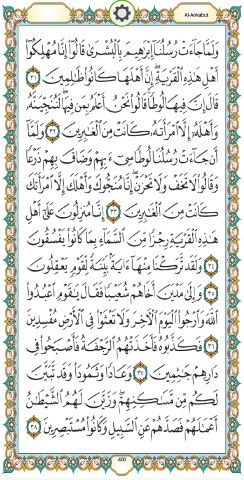 Al-Ankabut
وَلَمَّا جَاءَتْ رُسُلُنَا إِبْرَاهِيمَ بِالْبُشْرَىٰ قَالُوا إِنَّا مُهْلِكُو
أَهْلِ هَٰذِهِ الْقَرْيَةِ إِنَّ أَهْلَهَا كَانُوا ظَالِمِينَ ٣١
قَالَ إِنَّ فِيهَا لُوطًا قَالُوا نَحْنُ أَعْلَمُ بِمَن فِيهَا لَنُنَجِّيَنَّهُ
وَأَهْلَهُ إِلَّا امْرَأَتَهُ كَانَتْ مِنَ الْغَابِرِينَ ٣٢ وَلَمَّا
أَن جَاءَتْ رُسُلُنَا لُوطًا سِيءَ بِهِمْ وَضَاقَ بِهِمْ ذَرْعًا
وَقَالُوا لَا تَخَفْ وَلَا تَحْزَنْ إِنَّا مُنَجُّوكَ وَأَهْلَكَ إِلَّا امْرَأَتَكَ
كَانَتْ مِنَ الْغَابِرِينَ ٣٣ إِنَّا مُنزِلُونَ عَلَىٰ أَهْلِ
هَٰذِهِ الْقَرْيَةِ رِجْزًا مِّنَ السَّمَاءِ بِمَا كَانُوا يَفْسُقُونَ
٣٤ وَلَقَد تَّرَكْنَا مِنْهَا آيَةً بَيِّنَةً لِّقَوْمٍ يَعْقِلُونَ
٣٥ وَإِلَىٰ مَدْيَنَ أَخَاهُمْ شُعَيْبًا فَقَالَ يَا قَوْمِ اعْبُدُوا
اللَّهَ وَارْجُوا الْيَوْمَ الْآخِرَ وَلَا تَعْثَوْا فِي الْأَرْضِ مُفْسِدِينَ
٣٦ فَكَذَّبُوهُ فَأَخَذَتْهُمُ الرَّجْفَةُ فَأَصْبَحُوا فِي
دَارِهِمْ جَاثِمِينَ ٣٧ وَعَادًا وَثَمُودَا وَقَد تَّبَيَّنَ
لَكُم مِّن مَّسَاكِنِهِمْ وَزَيَّنَ لَهُمُ الشَّيْطَانُ
أَعْمَالَهُمْ فَصَدَّهُمْ عَنِ السَّبِيلِ وَكَانُوا مُسْتَبْصِرِينَ ٣٨
400